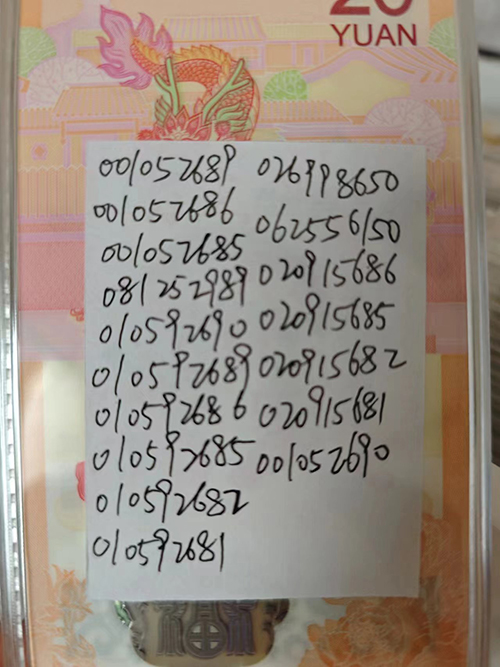 20
YUAN
001052689 026998650
001052686 062556150
001052685 020915686
081252989 020915685
010592690 020915682
010592689 020915681
010592686 001052690
010592685
010592682
010592681